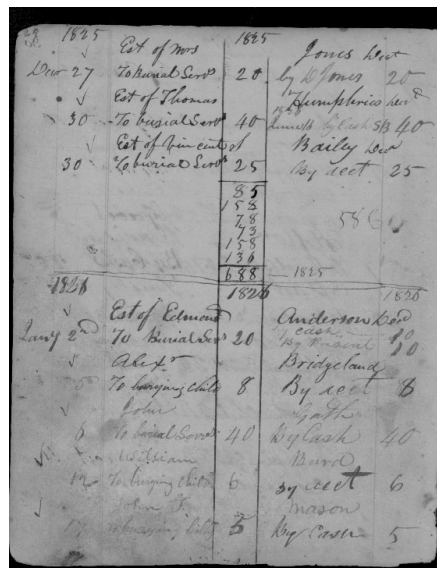 1825 1825
Est of Mrs Jones Decd
Decr 27 To Burial Servs 20 by D Jones 20
Est of Thomas Humphries Decd
30 To burial Servs 40 by Cash S/B 40
Est of Vincient Bailey Decd
30 To burial Servs 25 By acct 25
85
158
78 586
73
158
136
688 1825
1826 1826 1826
Est of Edmond Anderson Decd
Cash 10
Jany 2nd To Burial Servs 20 By 10
Alexr Bridgeland
To burying Child 8 By acct 8
John Gath
6 To burial Servs 40 By Cash 40
William Burd
12 To burying Child 6 By acct 6
John F. Mason
To burying Child 5 By Cash 5